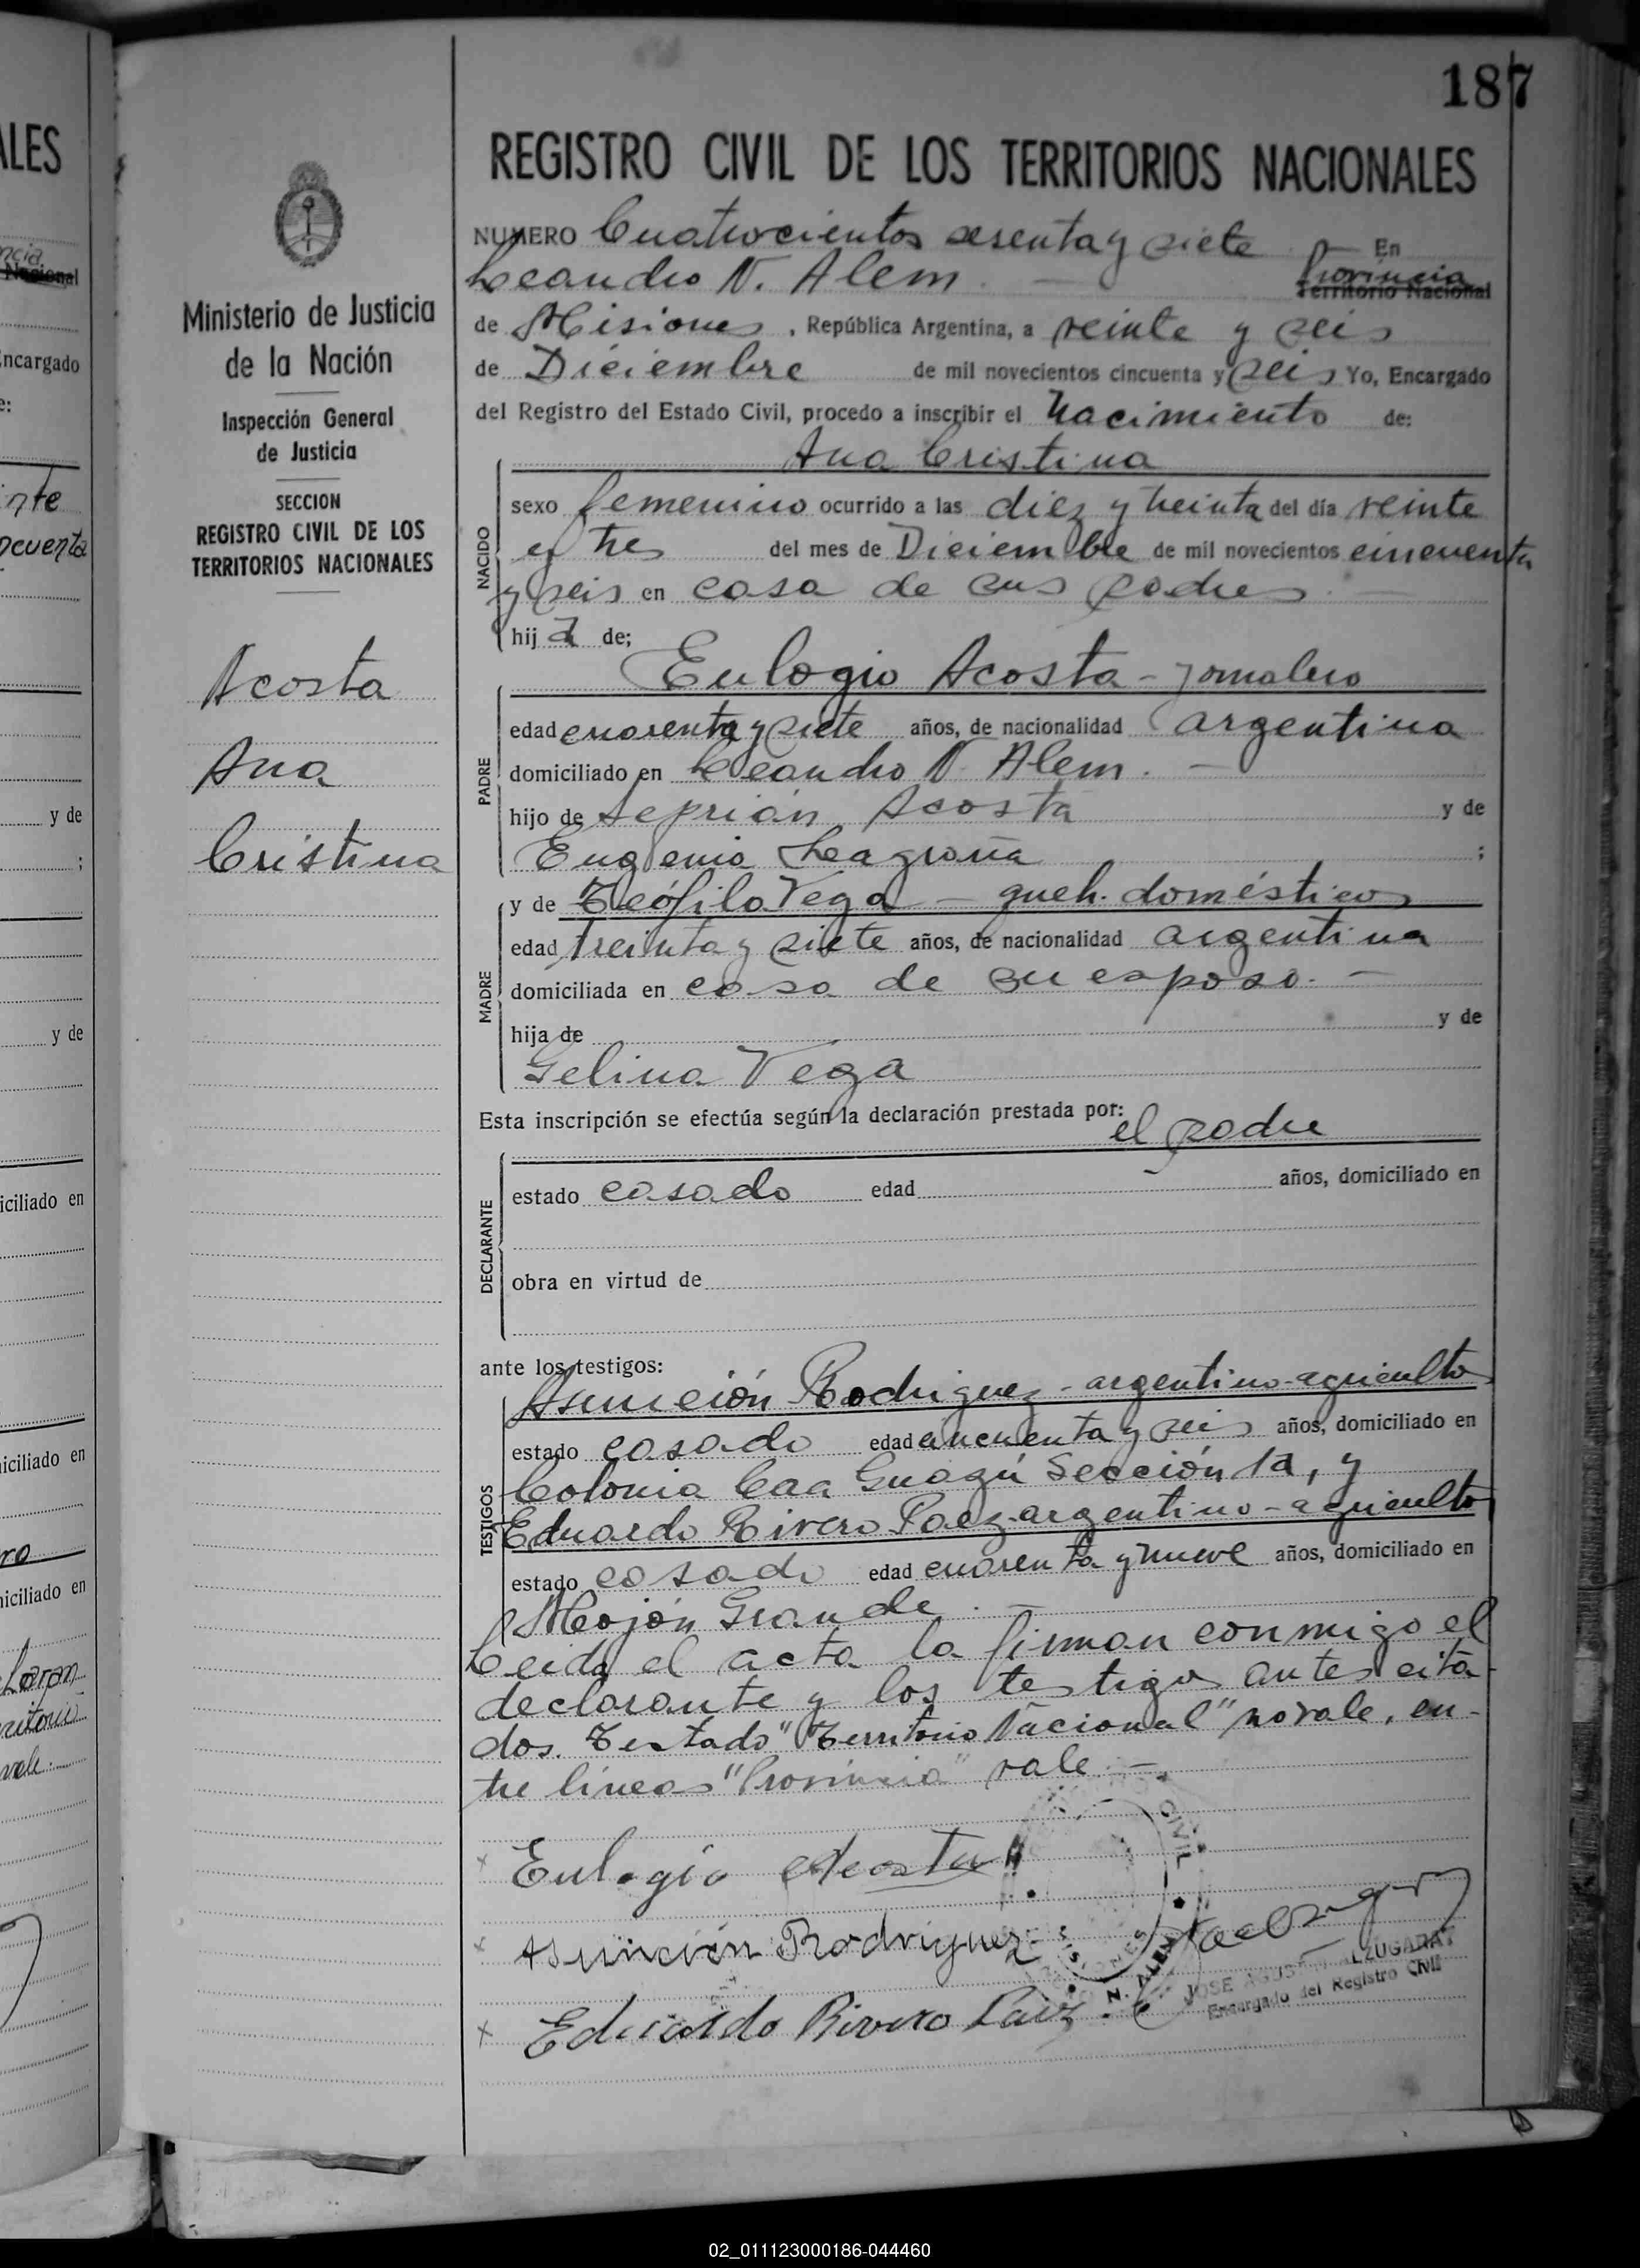 187
REGISTRO CIVIL DE LOS TERRITORIOS NACIONALES
NUMERO Cuatrocientos sesenta y siete En
Leandro N. Alem. — Provincia
Territorio Nacional
de Misiones, República Argentina, a veinte y seis
de Diciembre de mil novecientos cincuenta y seis Yo, Encargado
del Registro del Estado Civil, procedo a inscribir el Nacimiento de:
Ana Cristina
NACIDO
sexo femenino ocurrido a las diez y treinta del día veinte
y tres del mes de Diciembre de mil novecientos cincuenta
y seis en casa de sus padres. —
hija de;
Eulogio Acosta - jornalero
PADRE
edad cuarenta y siete años, de nacionalidad argentina
domiciliado en Leandro N. Alem. —
hijo de Acosta y de
Eugenia ;
y de Teófila Vega — queh. domésticos
MADRE
edad treinta y siete años, de nacionalidad argentina
domiciliada en casa de su esposo. —
hija de y de
Gelina Vega
Esta inscripción se efectúa según la declaración prestada por:
el padre
DECLARANTE
estado casado edad años, domiciliado en
obra en virtud de
ante los testigos:
TESTIGOS
Asunción Rodriguez - argentino - agricultor
estado casado edad cincuenta y seis años, domiciliado en
Colonia Caa Guazú Sección 1a, y
Eduardo Rivero Paez - argentino - agricultor
estado casado edad cuarenta y nueve años, domiciliado en
Mojón Grande. —
Leida el acta la firman conmigo el
declarante y los testigos antes cita-
dos. Testado "Territorio Nacional" no vale, en-
tre líneas "Provincia" vale. —
x Eulogio Acosta
x Asunción Rodriguez
x Eduardo Rivero Paez
CIVIL
MISIONES
N. ALEM
JOSE AGUSTIN ALZUGARAY
Encargado del Registro Civil
Ministerio de Justicia
de la Nación
Inspección General
de Justicia
SECCION
REGISTRO CIVIL DE LOS
TERRITORIOS NACIONALES
Acosta
Ana
Cristina
ALES
Nacional
Encargado
y de
;
y de
iciliado en
iciliado en
iciliado en
vale.
02_011123000186-044460